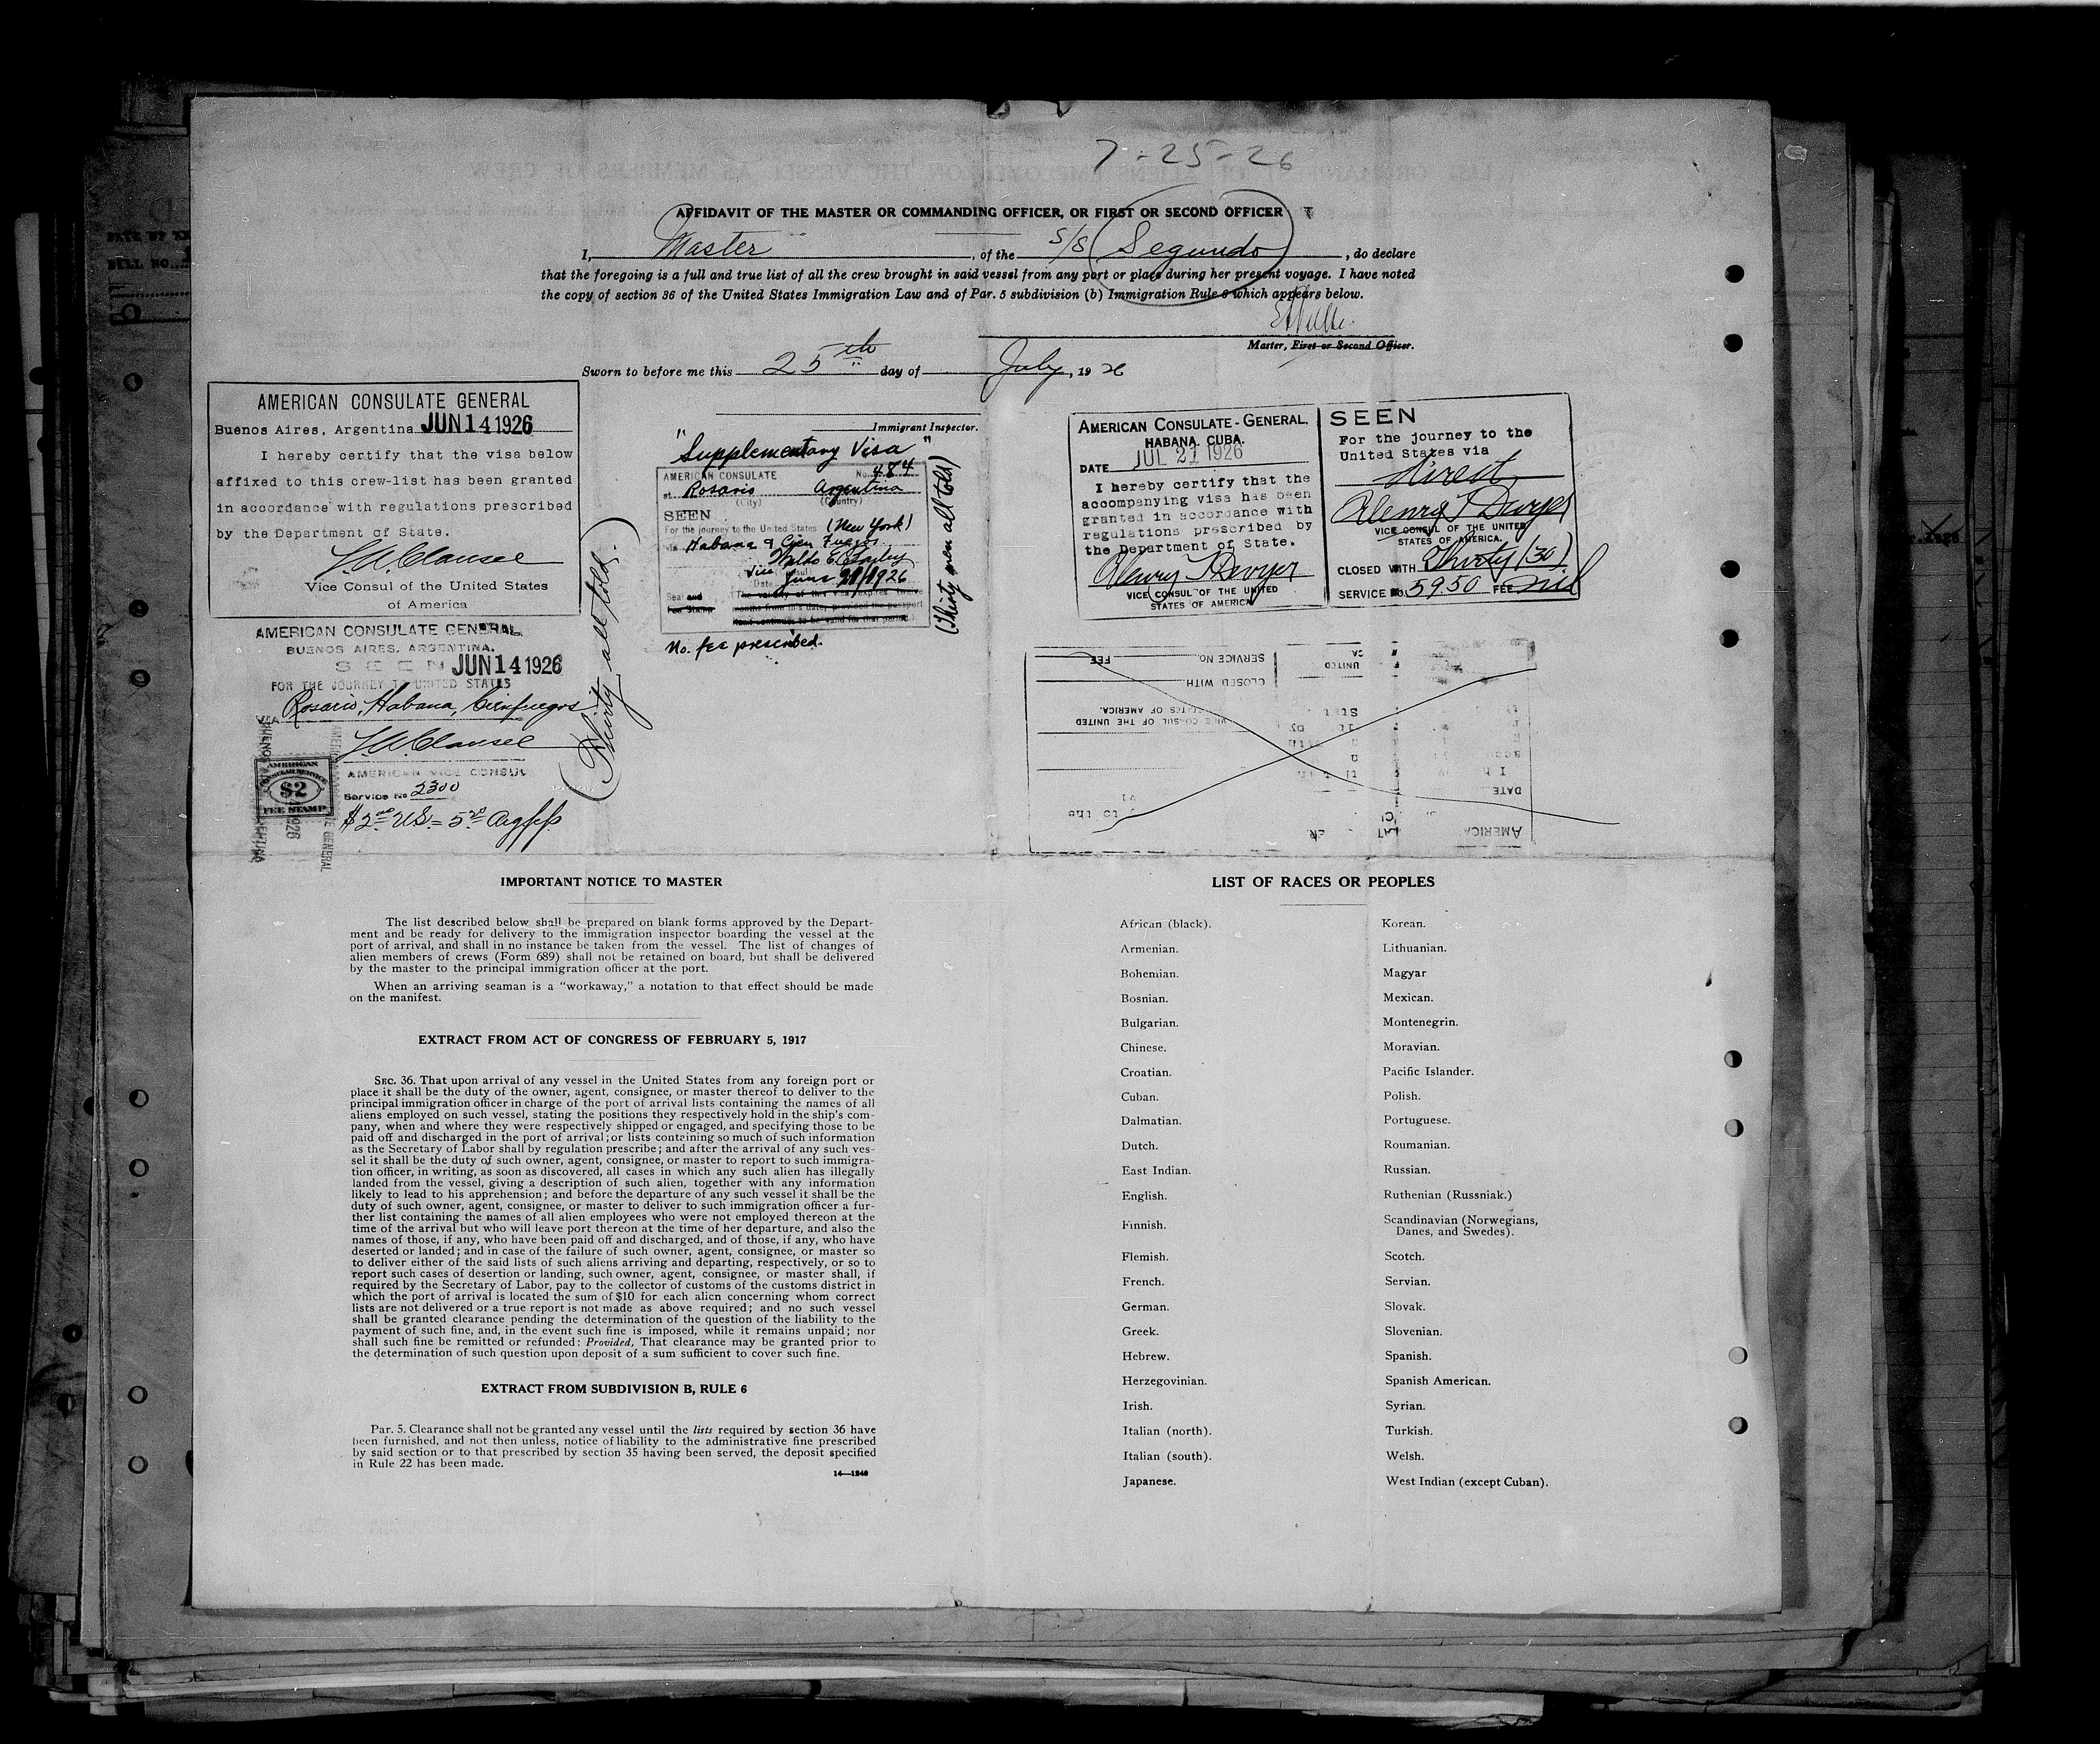 7-25-26
AFFIDAVIT OF THE MASTER OR COMMANDING OFFICER, OR FIRST OR SECOND OFFICER
I, Master, of the S/S Segundo, do declare
that the foregoing is a full and true list of all the crew brought in said vessel from any port or place during her present voyage. I have noted
the copy of section 36 of the United States Immigration Law and of Par. 5 subdivision (b) Immigration Rule 6 which appears below.
Master, First or Second Officer.
Sworn to before me this 25th day of July, 1926
Immigrant Inspector.
AMERICAN CONSULATE GENERAL
Buenos Aires, Argentina JUN 14 1926
I hereby certify that the visa below
affixed to this crew-list has been granted
in accordance with regulations prescribed
by the Department of State.
Vice Consul of the United States
of America
AMERICAN CONSULATE GENERAL
BUENOS AIRES, ARGENTINA.
SEEN JUN 14 1926
FOR THE JOURNEY TO UNITED STATES
VIA Rosario, Habana, Cienfuegos
AMERICAN VICE CONSUL
Service No 2300
AMERICAN
CONSULAR SERVICE
$2
FEE STAMP
(Thirty all told.)
"Supplementary Visa"
AMERICAN CONSULATE No. 484
at Rosario Argentina
(City) (Country)
SEEN
For the journey to the United States (New York)
via Habana & Cien Fuegos.
Vice Consul
Date June 21/1926
Seal and
Fee Stamp
(The validity of this visa expires twelve
months from this date, provided the passport
itself continues to be valid for that period)
No. fee prescribed.
(Thirty men all told)
AMERICAN CONSULATE-GENERAL.
HABANA. CUBA.
DATE JUL 21 1926
I hereby certify that the
accompanying visa has been
granted in accordance with
regulations prescribed by
the Department of State.
Henry T Dwyer
VICE CONSUL OF THE UNITED
STATES OF AMERICA
SEEN
For the journey to the
United States via
direct
Henry T Dwyer
VICE CONSUL OF THE UNITED
STATES OF AMERICA.
CLOSED WITH Thirty (30)
SERVICE NO. 5950 FEE nil
SERVICE NO. FEE
CLOSED WITH
VICE CONSUL OF THE UNITED
STATES OF AMERICA.
DATE
AMERICA
IMPORTANT NOTICE TO MASTER
The list described below shall be prepared on blank forms approved by the Depart-
ment and be ready for delivery to the immigration inspector boarding the vessel at the
port of arrival, and shall in no instance be taken from the vessel. The list of changes of
alien members of crews (Form 689) shall not be retained on board, but shall be delivered
by the master to the principal immigration officer at the port.
When an arriving seaman is a "workaway," a notation to that effect should be made
on the manifest.
EXTRACT FROM ACT OF CONGRESS OF FEBRUARY 5, 1917
SEC. 36. That upon arrival of any vessel in the United States from any foreign port or
place it shall be the duty of the owner, agent, consignee, or master thereof to deliver to the
principal immigration officer in charge of the port of arrival lists containing the names of all
aliens employed on such vessel, stating the positions they respectively hold in the ship's com-
pany, when and where they were respectively shipped or engaged, and specifying those to be
paid off and discharged in the port of arrival; or lists containing so much of such information
as the Secretary of Labor shall by regulation prescribe; and after the arrival of any such ves-
sel it shall be the duty of such owner, agent, consignee, or master to report to such immigra-
tion officer, in writing, as soon as discovered, all cases in which any such alien has illegally
landed from the vessel, giving a description of such alien, together with any information
likely to lead to his apprehension; and before the departure of any such vessel it shall be the
duty of such owner, agent, consignee, or master to deliver to such immigration officer a fur-
ther list containing the names of all alien employees who were not employed thereon at the
time of the arrival but who will leave port thereon at the time of her departure, and also the
names of those, if any, who have been paid off and discharged, and of those, if any, who have
deserted or landed; and in case of the failure of such owner, agent, consignee, or master so
to deliver either of the said lists of such aliens arriving and departing, respectively, or so to
report such cases of desertion or landing, such owner, agent, consignee, or master shall, if
required by the Secretary of Labor, pay to the collector of customs of the customs district in
which the port of arrival is located the sum of $10 for each alien concerning whom correct
lists are not delivered or a true report is not made as above required; and no such vessel
shall be granted clearance pending the determination of the question of the liability to the
payment of such fine, and, in the event such fine is imposed, while it remains unpaid; nor
shall such fine be remitted or refunded: Provided, That clearance may be granted prior to
the determination of such question upon deposit of a sum sufficient to cover such fine.
EXTRACT FROM SUBDIVISION B, RULE 6
Par. 5. Clearance shall not be granted any vessel until the lists required by section 36 have
been furnished, and not then unless, notice of liability to the administrative fine prescribed
by said section or to that prescribed by section 35 having been served, the deposit specified
in Rule 22 has been made.
14—1240
LIST OF RACES OR PEOPLES
African (black).
Armenian.
Bohemian.
Bosnian.
Bulgarian.
Chinese.
Croatian.
Cuban.
Dalmatian.
Dutch.
East Indian.
English.
Finnish.
Flemish.
French.
German.
Greek.
Hebrew.
Herzegovinian.
Irish.
Italian (north).
Italian (south).
Japanese.
Korean.
Lithuanian.
Magyar
Mexican.
Montenegrin.
Moravian.
Pacific Islander.
Polish.
Portuguese.
Roumanian.
Russian.
Ruthenian (Russniak.)
Scandinavian (Norwegians,
Danes, and Swedes).
Scotch.
Servian.
Slovak.
Slovenian.
Spanish.
Spanish American.
Syrian.
Turkish.
Welsh.
West Indian (except Cuban).